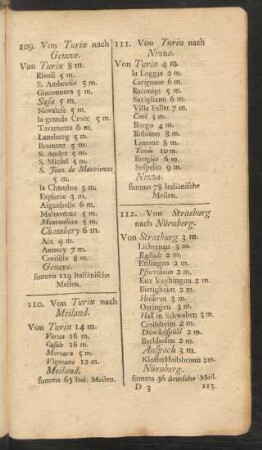 109. Von Turin nach
Geneve.
Von Turin 8 m.
Rivoli 5 m.
S. Ambrosio 5 m.
Giaconnera 3 m.
Susa 5 m.
Novalese 5 m.
la grande Croix 5 m.
Taremutta 6 m.
Laneburg 5 m.
Bramant 5 m.
S. Andre 5 m.
S. Michel 5 m.
S. Jean de Maurienne
5 m.
la Chambre 3 m.
Espierre 3 m.
Aiguebelle 6 m.
Maltaverne 5 m.
Montmelian 5 m.
Chambery 6 m.
Aix 9 m.
Annecy 7 m.
Crusille 8 m.
Geneve.
summa 119 Italiänische
Meilen.
110. Von Turin nach
Meiland.
Von Turin 14 m.
Verua 16 m.
Casale 16 m.
Mortara 5 m.
Vigevano 12 m.
Meiland.
summa 63 Ital. Meilen.
111. Von Turin nach
Nizza.
Von Turin 4 m.
la Loggia 2 m.
Carignano 6 m.
Raconigi 5 m.
Savigliano 6 m.
Villa Fallet 7 m.
Coni 3 m.
Borgo 4 m.
Limone 8 m.
Tenda 10 m.
Broglio 6 m.
Sospello 9 m.
Nizza.
summa 78 Italiänische
Meilen.
112. Von Strasburg
nach Nürnberg.
Von Strasburg 3 m.
Lichtenau 3 m.
Rastade 2 m.
Etlingen 2 m.
Pfortzheim 2 m.
Enz Vayhingen 2 m.
Bietigheim 2 m.
Heilbrun 3 m.
Oeringen 3 m.
Hall in Schwaben 3 m.
Creilsheim 2 m.
Dünckelspühl 2 m.
Bechhofen 2 m.
Anspach 3 m.
Kloster Heilsbronn 2 m.
Nürnberg.
summa 36 deutsche Meil.
D 3 113.